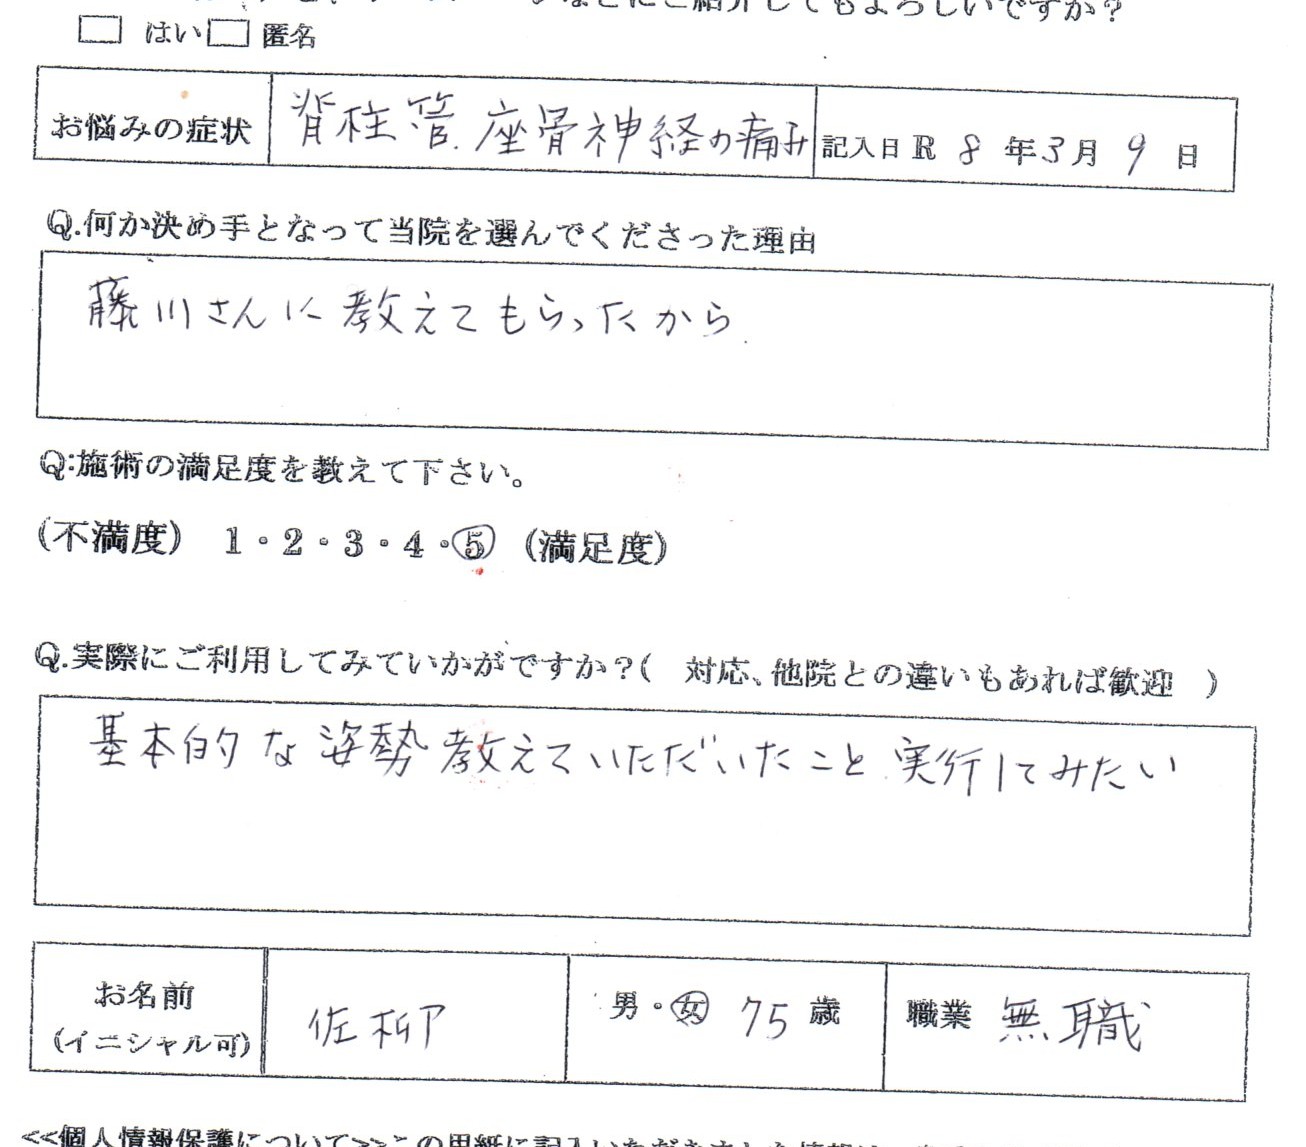 ご紹介してもよろしいですか？
はい 匿名
お悩みの症状 脊柱管.座骨神経の痛み 記入日 R 8 年 3 月 9 日
Q.何か決め手となって当院を選んでくださった理由
藤川さんに教えてもらったから
Q:施術の満足度を教えて下さい。
(不満度) 1・2・3・4・5 (満足度)
Q.実際にご利用してみていかがですか？( 対応、他院との違いもあれば歓迎 )
基本的な姿勢教えていただいたこと実行してみたい
お名前 佐柳 男・女 75 歳 職業 無職
(イニシャル可)
<<個人情報保護について>>この用紙に記入いただきました情報は